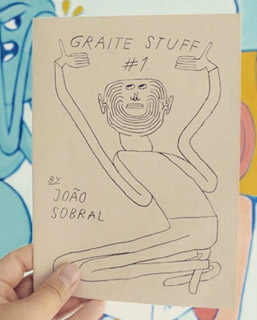 GRAITE STUFF
#1
BY
JOÃO
SOBRAL